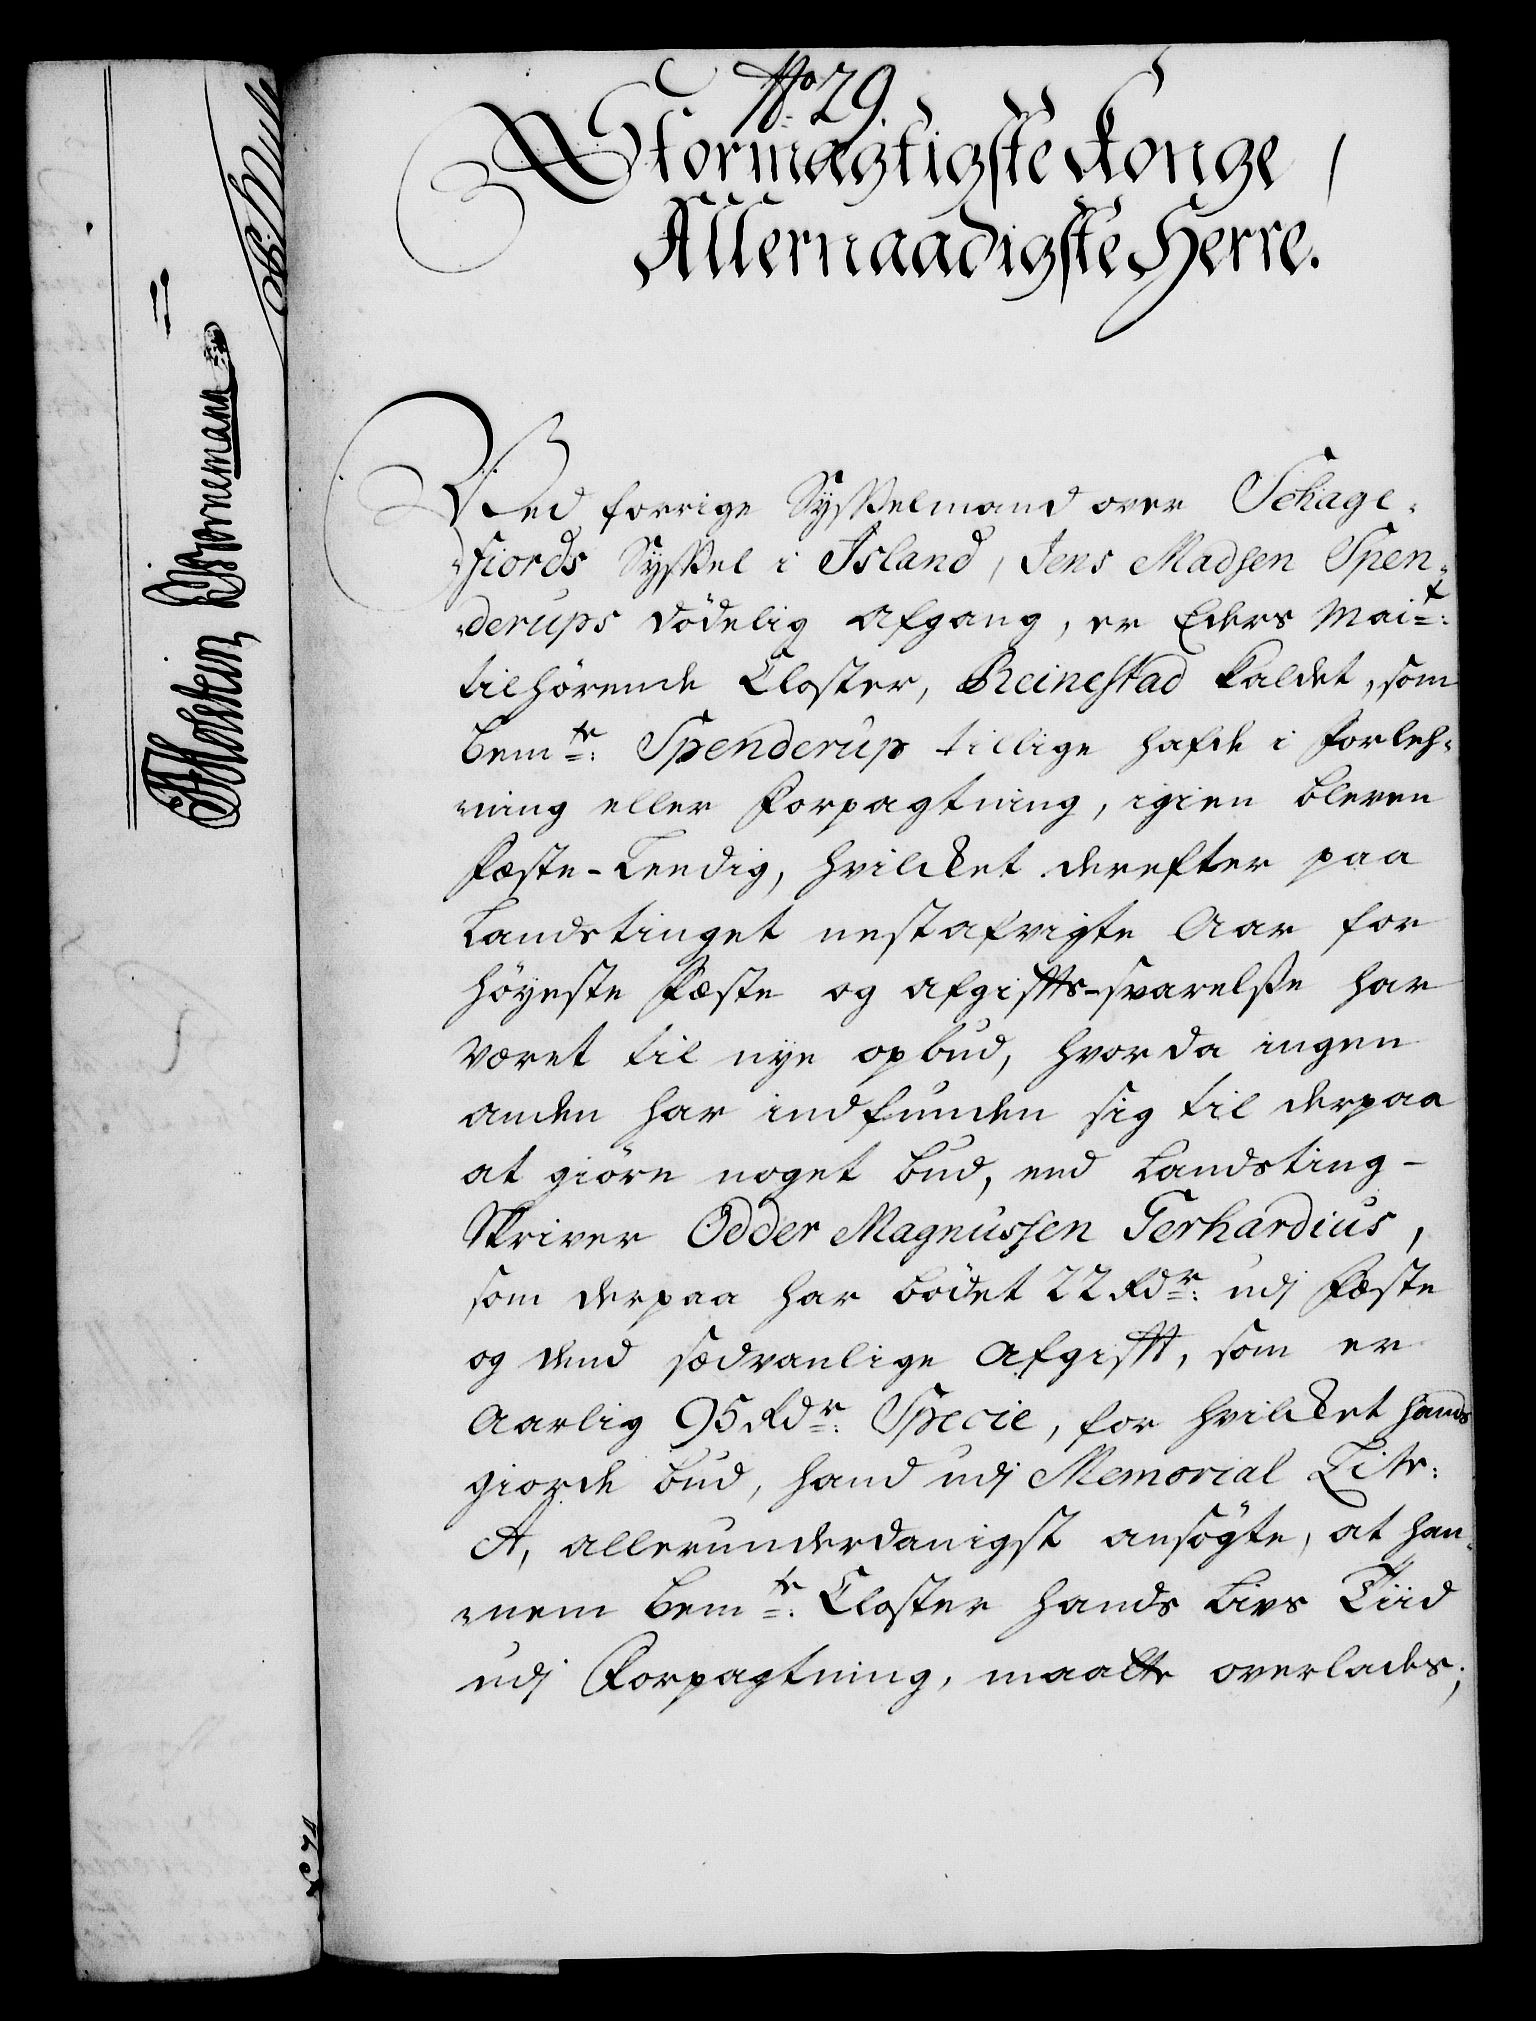 No. 29.
Stormægtigste Konge
Allernaadigste Herre.
Ved forrige Sysselmand over Schage-
fiords Syssel i Island, Jens Madsen Spen-
derups dödelig afgang, er Eders Mait:
tilhörende Closter, Reinestad kaldet, som
bemte: Spenderup tillige hafde i Forleh-
ning eller Forpagtning, igien bleven
Fæste-Leedig, hvilcket derefter paa
Landstinget nestafvigte Aar for
höyeste Fæste og afgiffts-svarelsse har
været til nye opbud, hvor da ingen
anden har indfunden sig til derpaa
at giöre noget bud, end Landsting-
Skriver Odder Magnussen Gerhardius,
som derpaa har bödet 22 Rdr: udj Fæste
og dend sædvanlige Afgifft, som er
Aarlig 95 Rdr: Specie, for hvilcket hands
giorde bud, hand udj Memorial Litr:
A, allerunderdanigst ansögte, at han-
nem bemte: Closter hands Livs Tiid
udj Forpagtning, maatte overlades;
Holstein
Bornemann